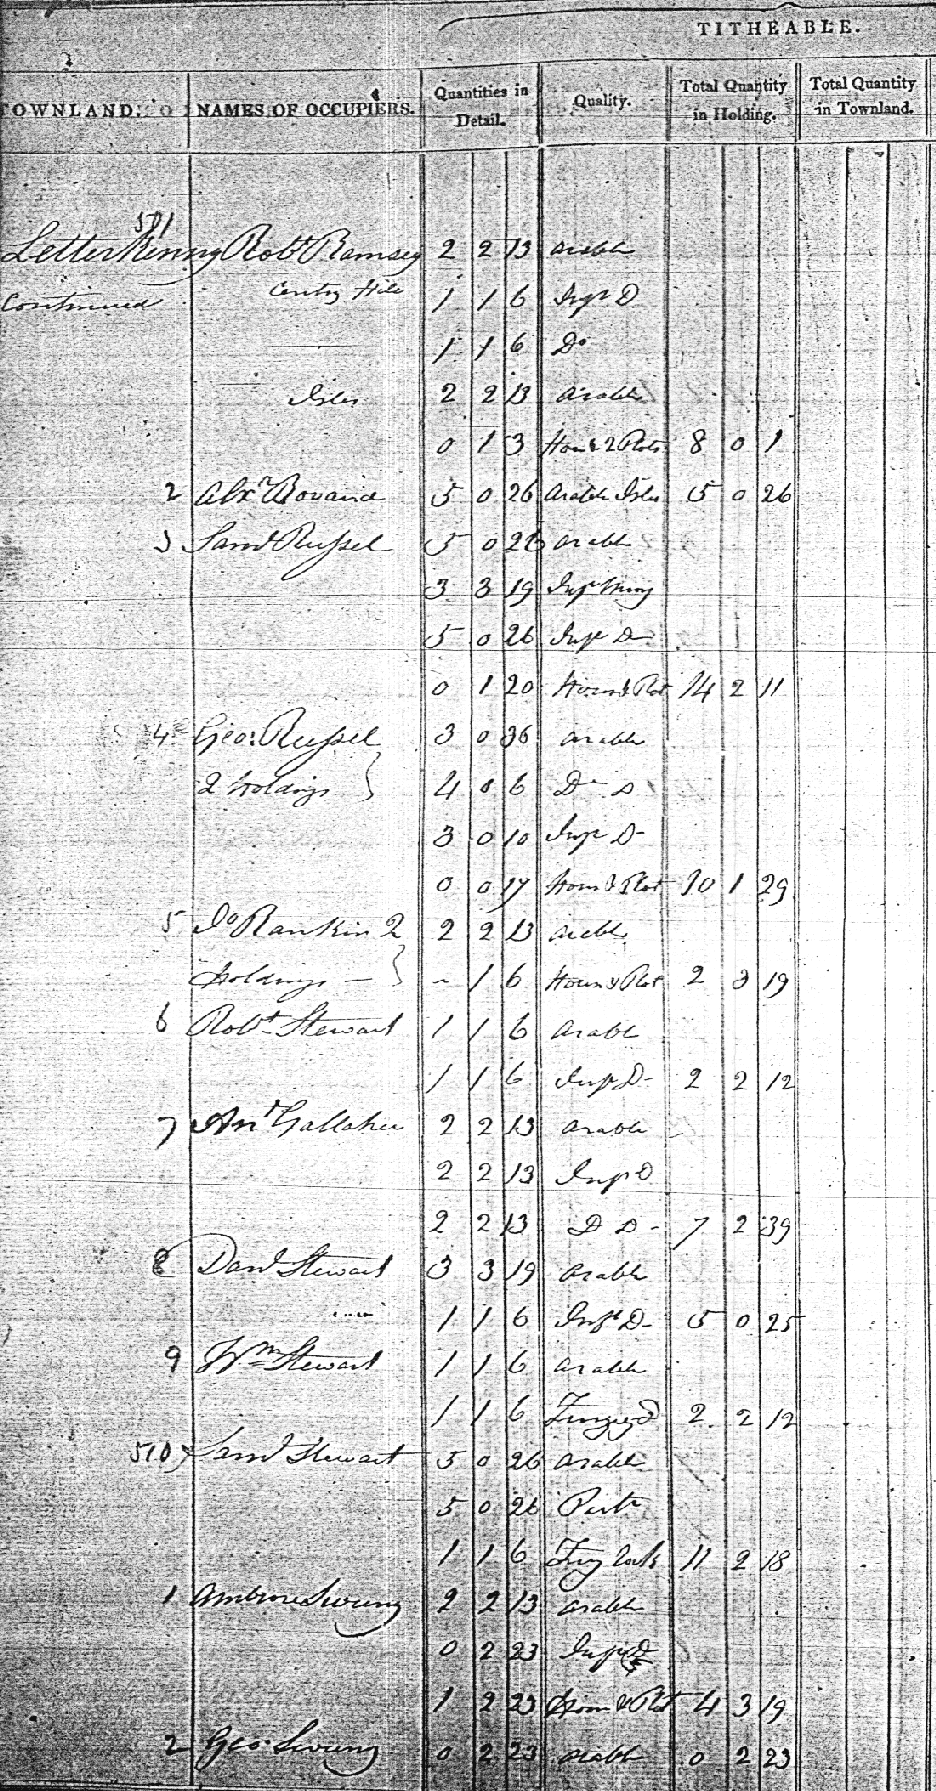 TITHEABLE.
TOWNLAND. NAMES OF OCCUPIERS. Quantities in Detail. Quality. Total Quantity in Holding. Total Quantity in Townland.
501
Letterkenny Robt Ramsey 2 2 13 Arable
Continued Hill 1 1 6 D
1 1 6 Do
Isles 2 2 13 Arable
0 1 3 2 Plots 8 0 1
2 Alxr Bovaird 5 0 26 Arable Isles 5 0 26
3 Saml Russel 5 0 26 Arable
3 3 19
5 0 26 D
0 1 20 House & Plot 14 2 11
4 Geo: Russel 3 0 36 Arable
2 Holdings } 4 0 6 Do D
3 0 10 D
0 0 17 House & Plot 10 1 29
5 Jo Rankin 2 2 2 13 Arable
Holdings } - 1 6 House & Plot 2 3 19
6 Robt Stewart 1 1 6 Arable
1 1 6 D 2 2 12
7 Anw Gallaher 2 2 13 Arable
2 2 13 D
2 2 13 D D 7 2 39
8 Danl Stewart 3 3 19 Arable
1 1 6 D 5 0 25
9 Wm Stewart 1 1 6 Arable
1 1 6 2 2 12
510 Saml Stewart 5 0 26 Arable
5 0 26
1 1 6 11 2 18
1 Ambrose Swiney 2 2 13 Arable
0 2 23
1 2 23 House & Plot 4 3 19
2 Geo: Swiney 0 2 23 Arable 0 2 23